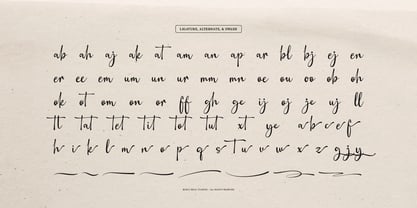 LIGATURE, ALTERNATE, & SWASH
ab ah aj ak at am an ap ar bl bj ej en
er ee em um un ur mm mn oe ou oo ob oh
ok ot om on or ff gh ge ij oj je uj ll
tt tat tet tit tot tut xt ye a b c e f
h i k l m n o p r s t u v w x z g j y